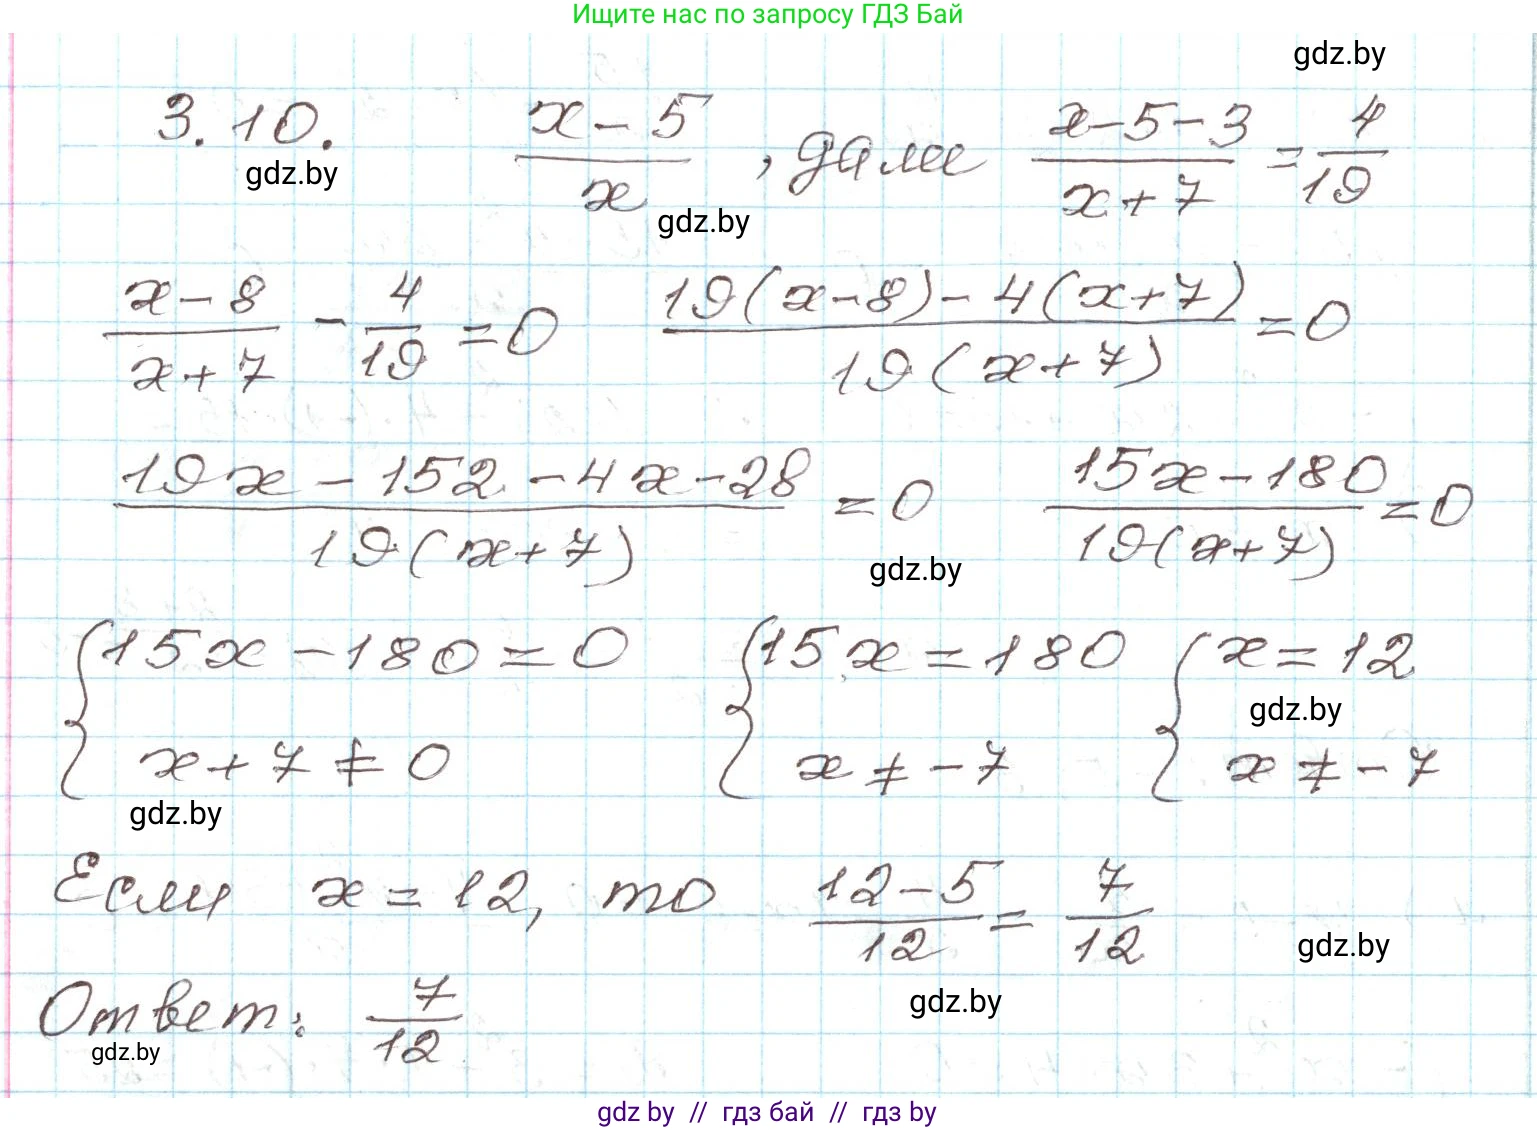 Ищите нас по запросу ГДЗ Бай
gdz.by
3.10. (x-5)/x , дали (x-5-3)/(x+7) = 4/19
gdz.by
gdz.by
(x-8)/(x+7) - 4/19 = 0 (19(x-8)-4(x+7))/(19(x+7)) = 0
(19x-152-4x-28)/(19(x+7)) = 0 (15x-180)/(19(x+7)) = 0
gdz.by
{15x-180=0 {15x=180 {x=12
gdz.by
x+7≠0 x≠-7 x≠-7
gdz.by
Если x=12, то (12-5)/12 = 7/12
gdz.by
gdz.by
Ответ: 7/12
gdz.by
gdz by // гдз бай // гдз by